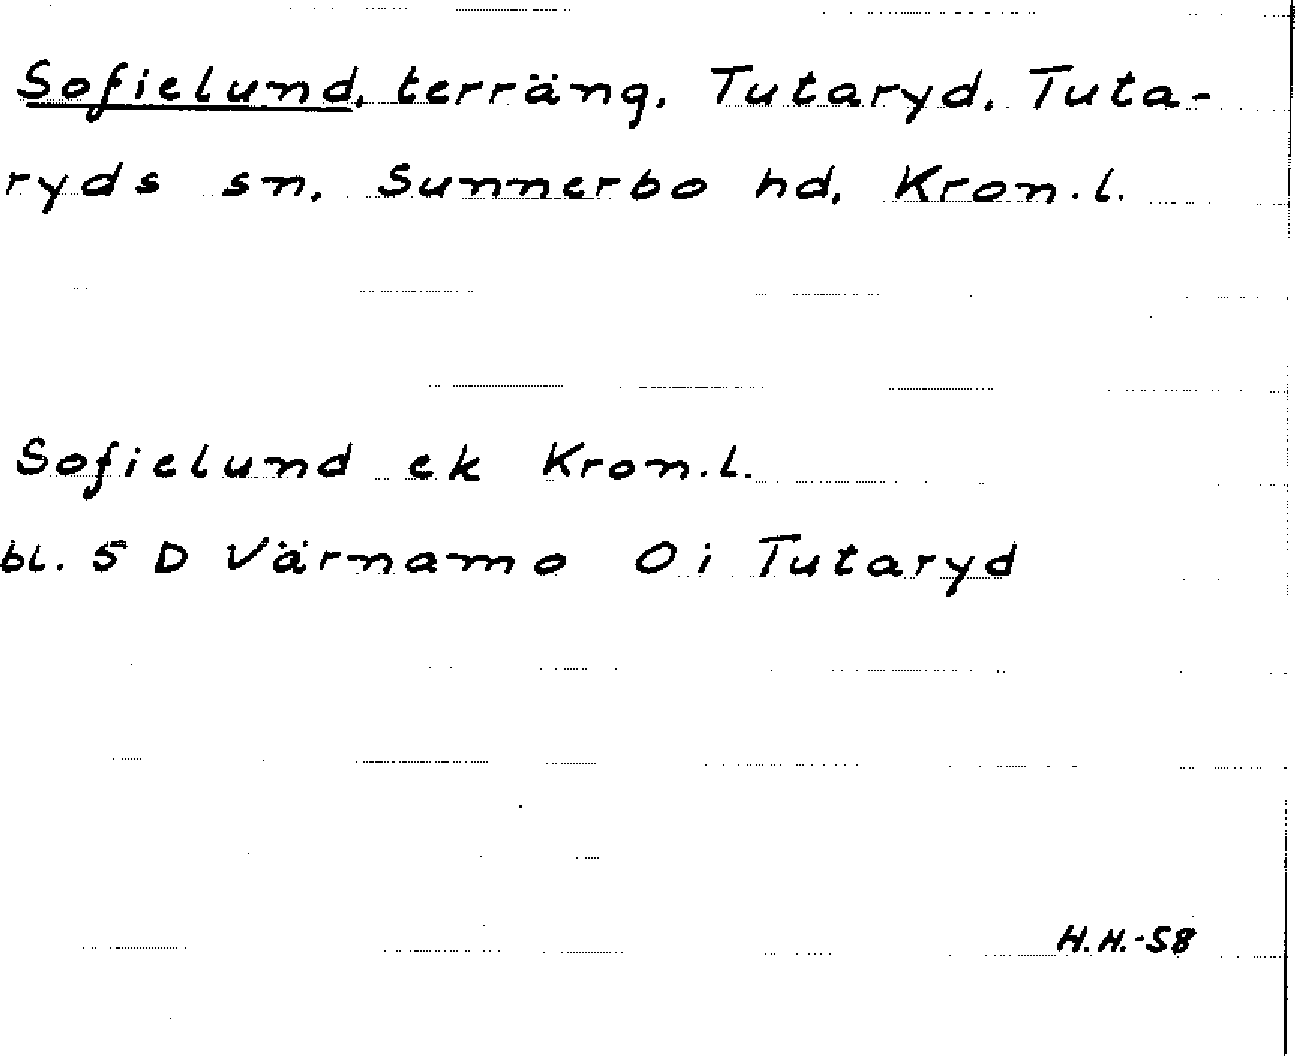 Sofielund, terräng, Tutaryd, Tuta-
ryds sn, Sunnerbo hd, Kron.l.
Sofielund ek Kron.l.
bl. 5 D Värnamo O i Tutaryd
H.H.-58